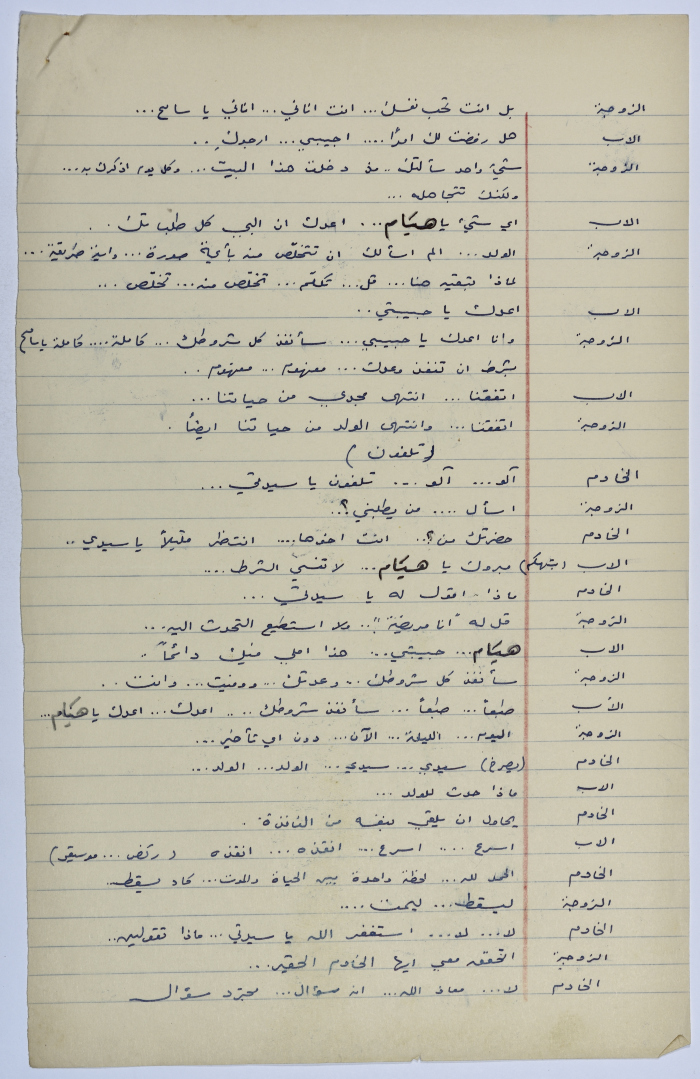 الزوجة بل انت تحب نفسك... انت اناني... اناني يا سامح...
الاب هل رفضت لك امراً.... اجيبي... ارجوك..
الزوجة شيئ واحد سألتك.. منذ دخلت هذا البيت... وكل يوم اذكرك به...
ولكنك تتجاهله...
الاب اي شيئ يا هيام... اعدك ان البي كل طلباتك..
الزوجة الولد... الم اسألك ان تتخلص منه بأية صورة... واية طريقة...
لماذا تبقيه هنا... قل... تكلم... تخلص منه... تخلص...
الاب اعدك يا حبيبتي..
الزوجة وانا اعدك يا حبيبي... سأنفذ كل شروطك... كاملة.... كاملة يا سامح
بشرط ان تنفذ وعدك... مفهوم... مفهوم..
الاب اتفقنا... انتهى مجدي من حياتنا...
الزوجة اتفقنا... وانتهى الولد من حياتنا ايضاً.
(تلفون)
الخادم آلو... آلو... تلفون يا سيدتي...
الزوجة اسأل.... من يطلبني؟..
الخادم حضرتك من؟.. انت اخوها.... انتظر قليلاً يا سيدي..
الاب (بتهكم) مبروك يا هيام... لا تنسي الشرط....
الخادم ماذا اقول له يا سيدتي...
الزوجة قل له "انا مريضة".. ولا استطيع التحدث اليه...
الاب هيام... حبيبتي... هذا املي فيك دائماً..
الزوجة سأنفذ كل شروطك.. وعدتك... ووفيت... وانت..
الأب طبعاً... طبعاً... سأنفذ شروطك.... اعدك... اعدك يا هيام...
الزوجة اليوم... الليلة... الآن... دون اي تأخير...
الخادم (يصرخ) سيدي... سيدي... الولد... الولد...
الاب ماذا حدث للولد...
الخادم يحاول ان يلقي بنفسه من النافذة.
الاب اسرع.... اسرع... انقذه... انقذه (ركض... موسيقى)
الخادم الحمد لله... لحظة واحدة بين الحياة والموت... كاد يسقط...
الزوجة ليسقط... ليمت....
الخادم لا... لا... استغفر الله يا سيدتي... ماذا تقولين..
الزوجة اتحقق معي ايها الخادم الحقير...
الخادم لا... معاذ الله... انه سؤال... مجرد سؤال